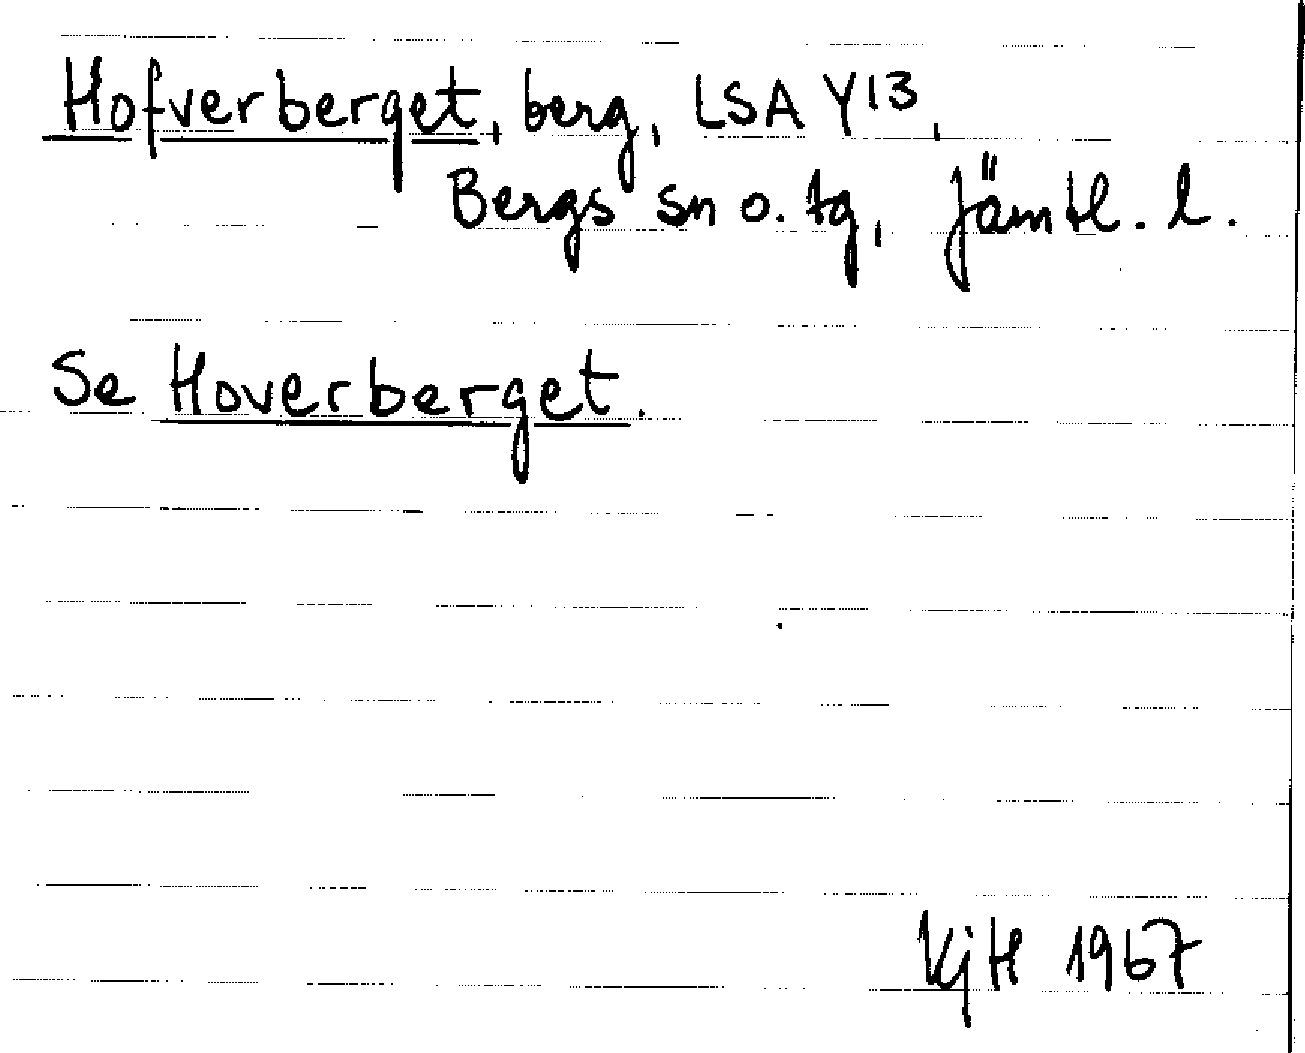 Hofverberget, berg, LSA Y13,
Bergs sn o. tg, Jämtl. l.
Se Hoverberget.
KjH 1967